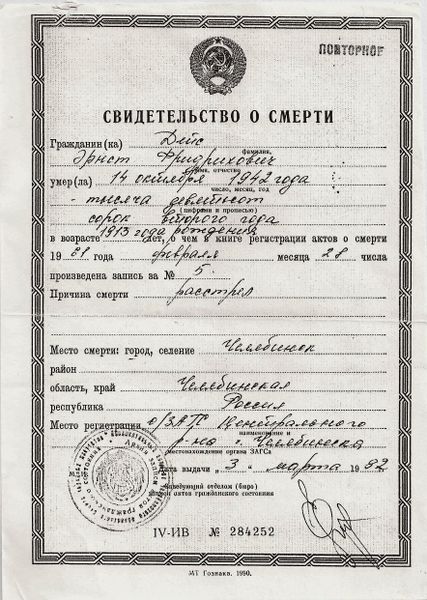 ПОВТОРНОЕ
СВИДЕТЕЛЬСТВО О СМЕРТИ
Гражданин(ка) Дейс
фамилия,
Эрнст Фридрихович
имя, отчество
умер(ла) 14 октября 1942 года
число, месяц, год
- тысяча девятьсот
(цифрами и прописью)
сорок второго года
1913 года рождения
в возрасте лет, о чем в книге регистрации актов о смерти
19 91 года февраля месяца 28 числа
произведена запись за № 5.
Причина смерти расстрел
Место смерти: город, селение Челябинск
район
область, край Челябинская
республика Россия
Место регистрации о/ЗАГС Центрального
наименование и
р-на г. Челябинска
местонахождение органа ЗАГСа
Дата выдачи „ 3 " марта 19 92
Заведующий отделом (бюро)
записей актов гражданского состояния
IV-ИВ № 284252
МТ Гознака. 1990.